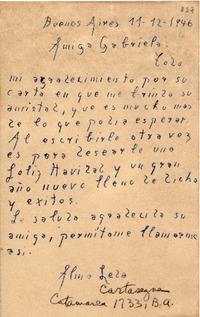 837
Buenos Aires 11-12-1946
Amiga Gabriela:
Todo
mi agradecimiento por su
carta en que me brinda su
amistad, que es mucho mas
de lo que podia esperar.
Al escribirle otra vez
es para desearle una
feliz Navidad y un gran
año nuevo lleno de dicha
y exitos.
La saluda agradecida su
amiga, permitame llamarme
asi.
Alma Leza
Cartasegna
Catamarca 1733, B.A.